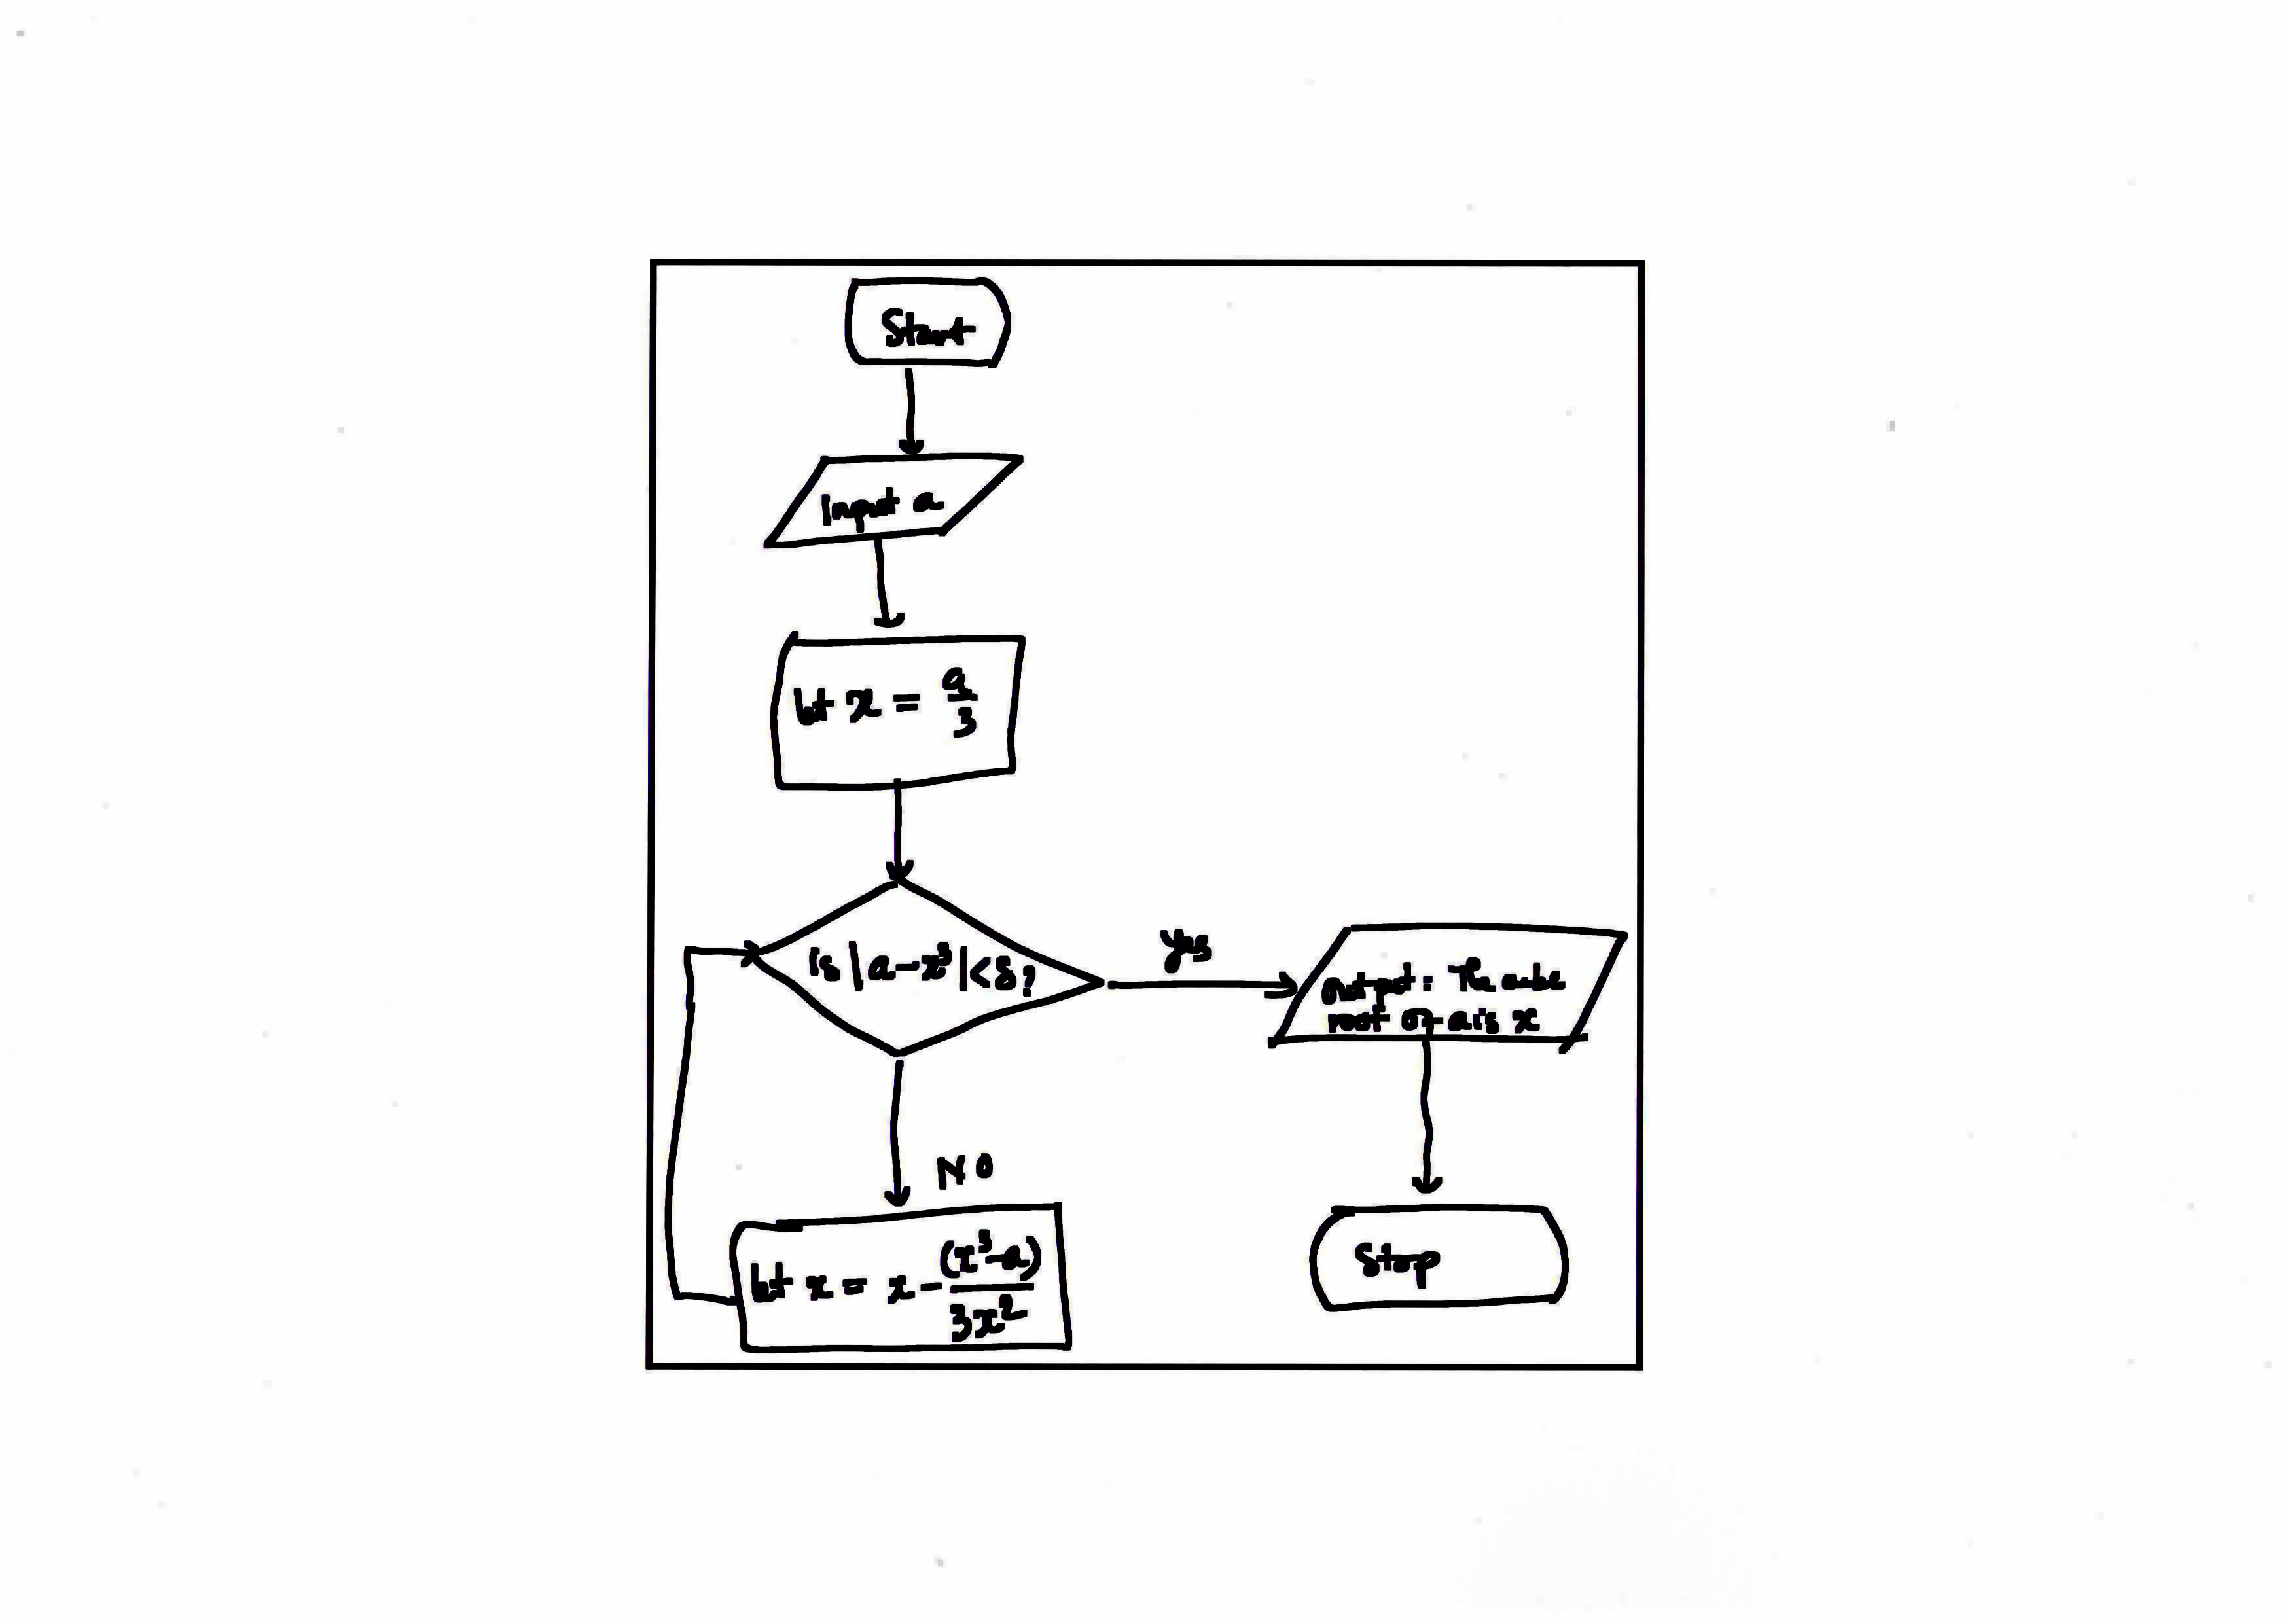 Start
Input a
let x = a/3
is |a-x³|<δ?
yes
output: The cube
root of a is x
NO
let x = x - (x³-a)/3x²
Stop